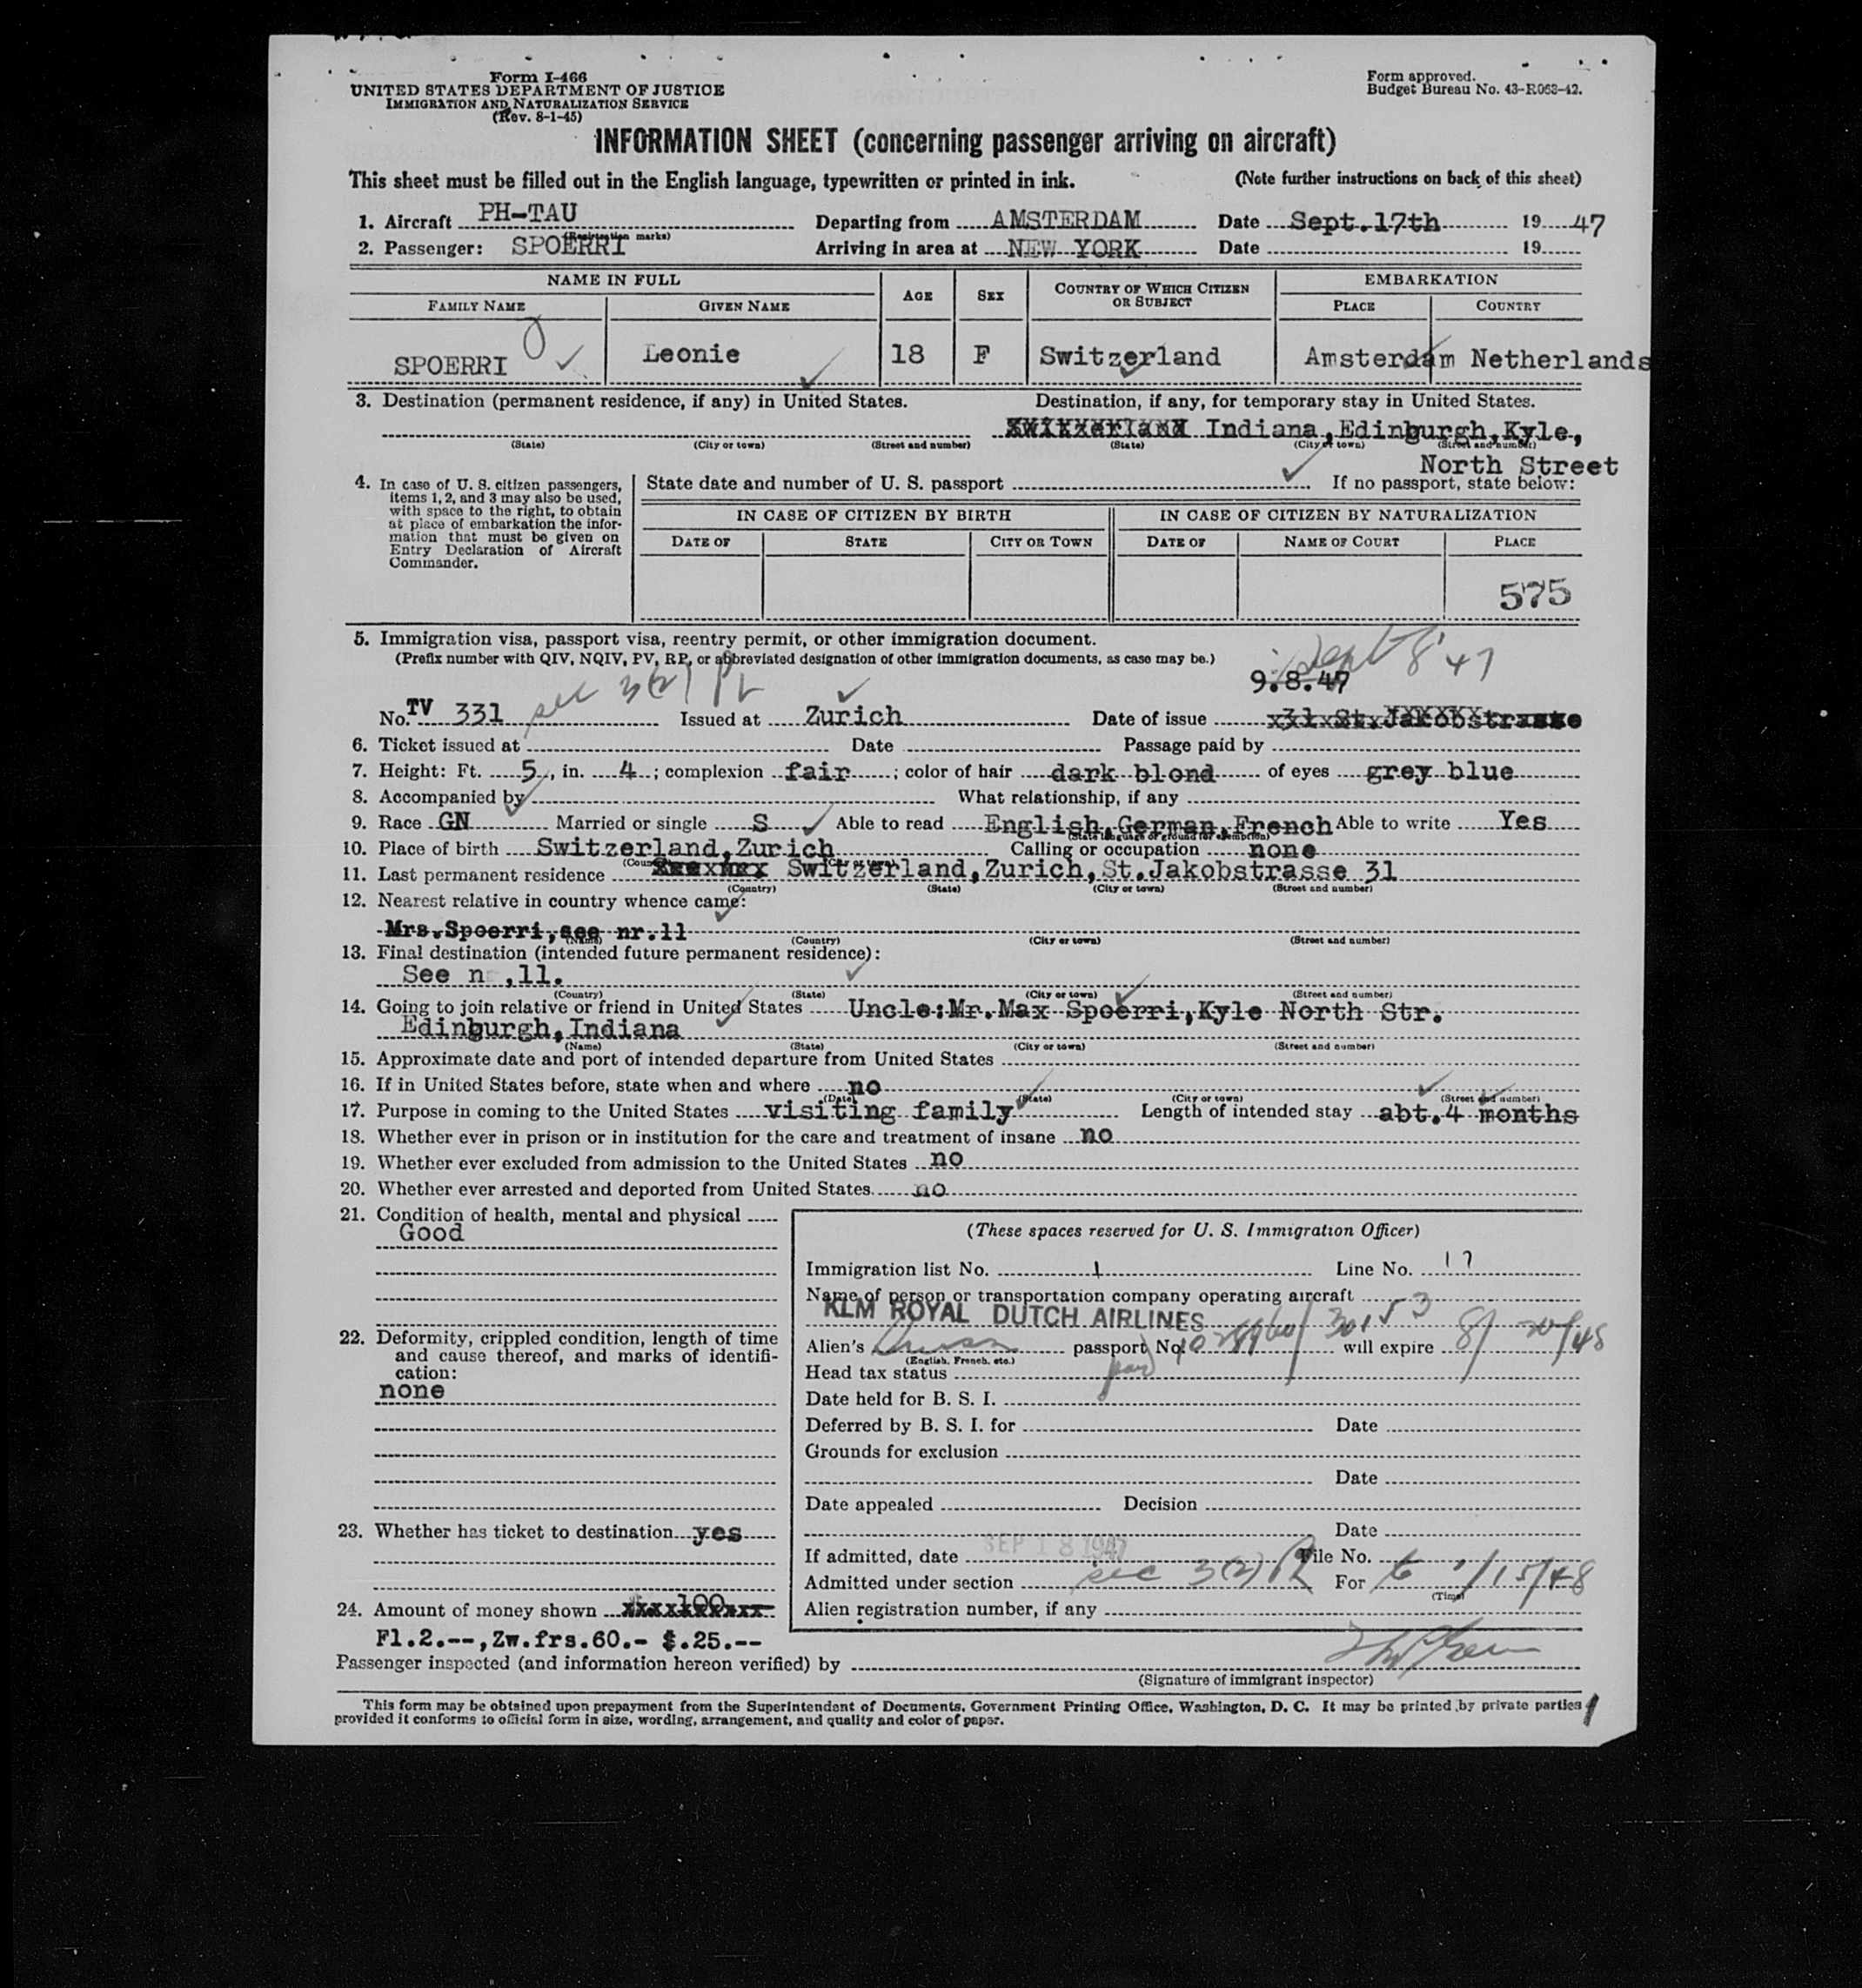 Form I-466
UNITED STATES DEPARTMENT OF JUSTICE
IMMIGRATION AND NATURALIZATION SERVICE
(Rev. 8-1-45)
Form approved.
Budget Bureau No. 43-R063-42.
INFORMATION SHEET (concerning passenger arriving on aircraft)
This sheet must be filled out in the English language, typewritten or printed in ink. (Note further instructions on back of this sheet)
1. Aircraft PH-TAU Departing from AMSTERDAM Date Sept.17th 19 47
(Registration marks)
2. Passenger: SPOERRI Arriving in area at NEW YORK Date 19
NAME IN FULL AGE SEX COUNTRY OF WHICH CITIZEN OR SUBJECT EMBARKATION
FAMILY NAME GIVEN NAME PLACE COUNTRY
SPOERRI Leonie 18 F Switzerland Amsterdam Netherlands
3. Destination (permanent residence, if any) in United States. Destination, if any, for temporary stay in United States.
Indiana,Edinburgh,Kyle,
(State) (City or town) (Street and number) (State) (City or town) (Street and number)
North Street
4. In case of U. S. citizen passengers, items 1, 2, and 3 may also be used, with space to the right, to obtain at place of embarkation the information that must be given on Entry Declaration of Aircraft Commander.
State date and number of U. S. passport If no passport, state below:
IN CASE OF CITIZEN BY BIRTH IN CASE OF CITIZEN BY NATURALIZATION
DATE OF STATE CITY OR TOWN DATE OF NAME OF COURT PLACE
575
5. Immigration visa, passport visa, reentry permit, or other immigration document.
(Prefix number with QIV, NQIV, PV, RP, or abbreviated designation of other immigration documents, as case may be.)
Sept 8 '47
sec 3(2)
9.8.47
No. TV 331 Issued at Zurich Date of issue
6. Ticket issued at Date Passage paid by
7. Height: Ft. 5, in. 4; complexion fair; color of hair dark blond of eyes grey blue
8. Accompanied by What relationship, if any
9. Race GN Married or single S Able to read English,German,French Able to write Yes
(State language or ground for exemption)
10. Place of birth Switzerland,Zurich Calling or occupation none
(Country) (City or town)
11. Last permanent residence Switzerland,Zurich,St.Jakobstrasse 31
(Country) (State) (City or town) (Street and number)
12. Nearest relative in country whence came:
Mrs.Spoerri,see nr.11
(Name) (Country) (City or town) (Street and number)
13. Final destination (intended future permanent residence):
See n ,11.
(Country) (State) (City or town) (Street and number)
14. Going to join relative or friend in United States Uncle:Mr.Max Spoerri,Kyle North Str.
Edinburgh,Indiana
(Name) (State) (City or town) (Street and number)
15. Approximate date and port of intended departure from United States
16. If in United States before, state when and where no
(Date) (State) (City or town) (Street and number)
17. Purpose in coming to the United States visiting family Length of intended stay abt.4 months
18. Whether ever in prison or in institution for the care and treatment of insane no
19. Whether ever excluded from admission to the United States no
20. Whether ever arrested and deported from United States no
21. Condition of health, mental and physical
Good
22. Deformity, crippled condition, length of time and cause thereof, and marks of identification:
none
23. Whether has ticket to destination yes
24. Amount of money shown 100
Fl.2.--,Zw.frs.60.- $.25.--
(These spaces reserved for U. S. Immigration Officer)
Immigration list No. 1 Line No. 17
Name of person or transportation company operating aircraft
KLM ROYAL DUTCH AIRLINES
Alien's passport No. will expire
(English, French, etc.)
Head tax status
Date held for B. S. I.
Deferred by B. S. I. for Date
Grounds for exclusion
Date
Date appealed Decision
Date
If admitted, date SEP 18 1947 File No.
Admitted under section sec 3(2) For to 1/15/48
(Time)
Alien registration number, if any
Passenger inspected (and information hereon verified) by
(Signature of immigrant inspector)
This form may be obtained upon prepayment from the Superintendent of Documents, Government Printing Office, Washington, D. C. It may be printed by private parties
provided it conforms to official form in size, wording, arrangement, and quality and color of paper.